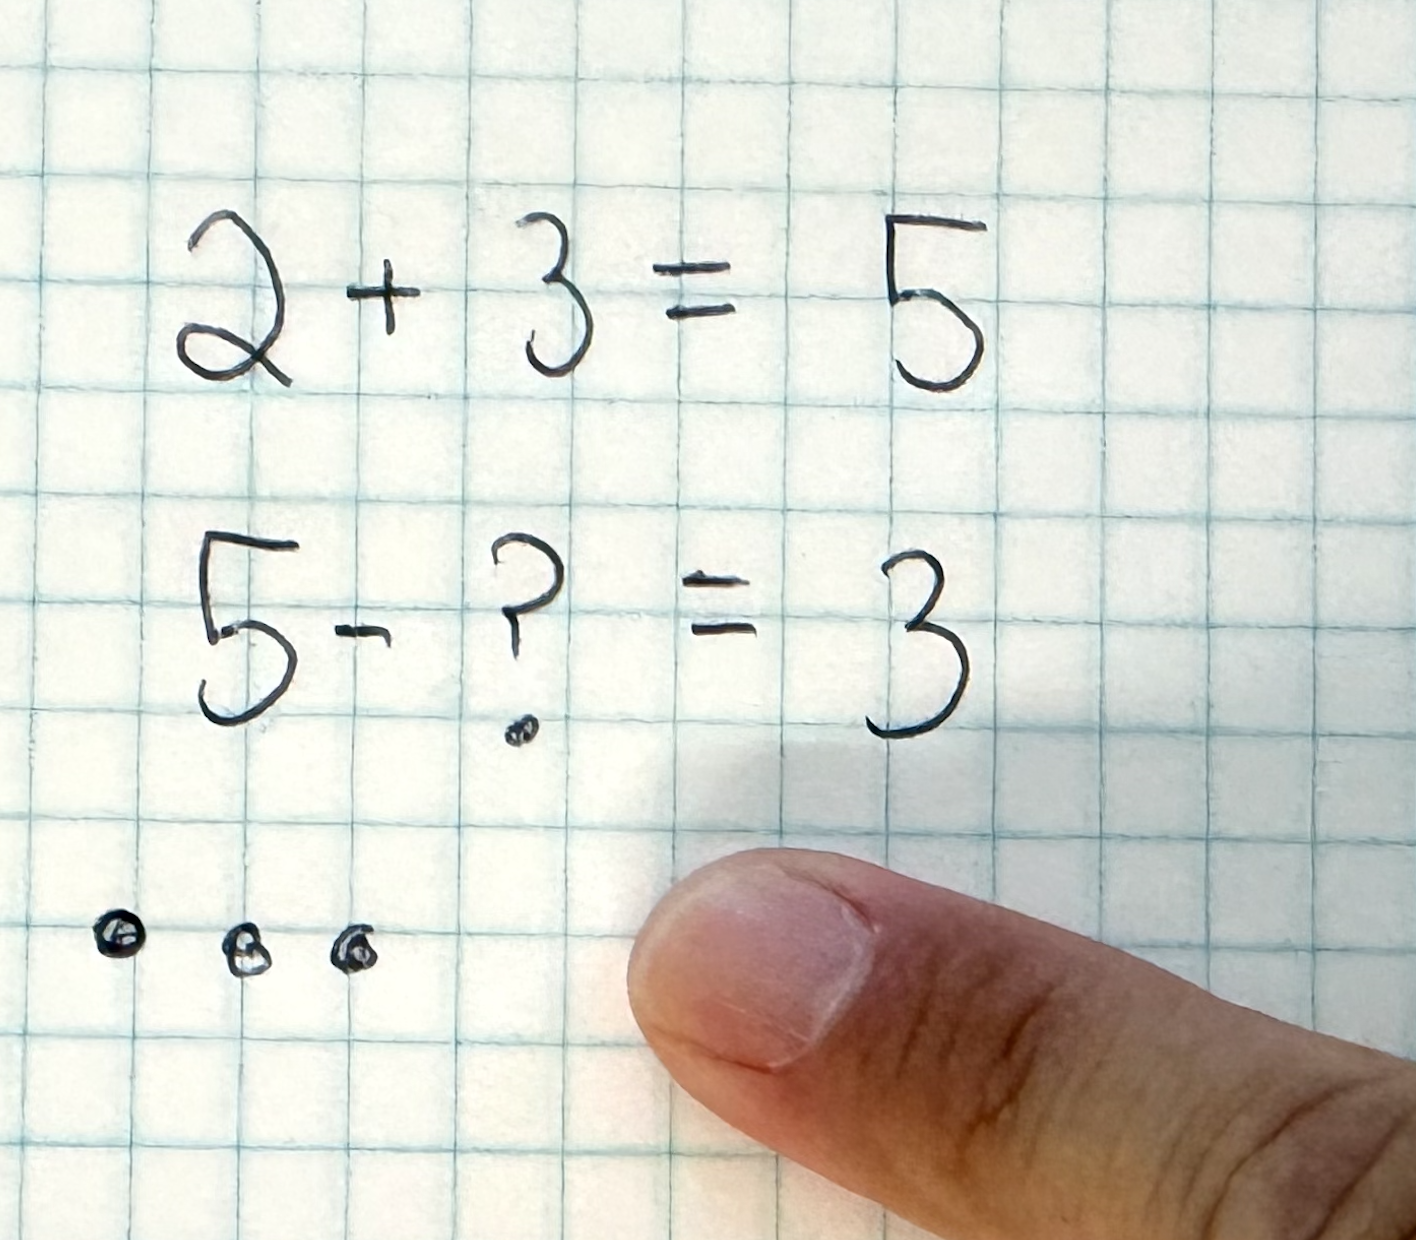 2 + 3 = 5
5 - ? = 3
...